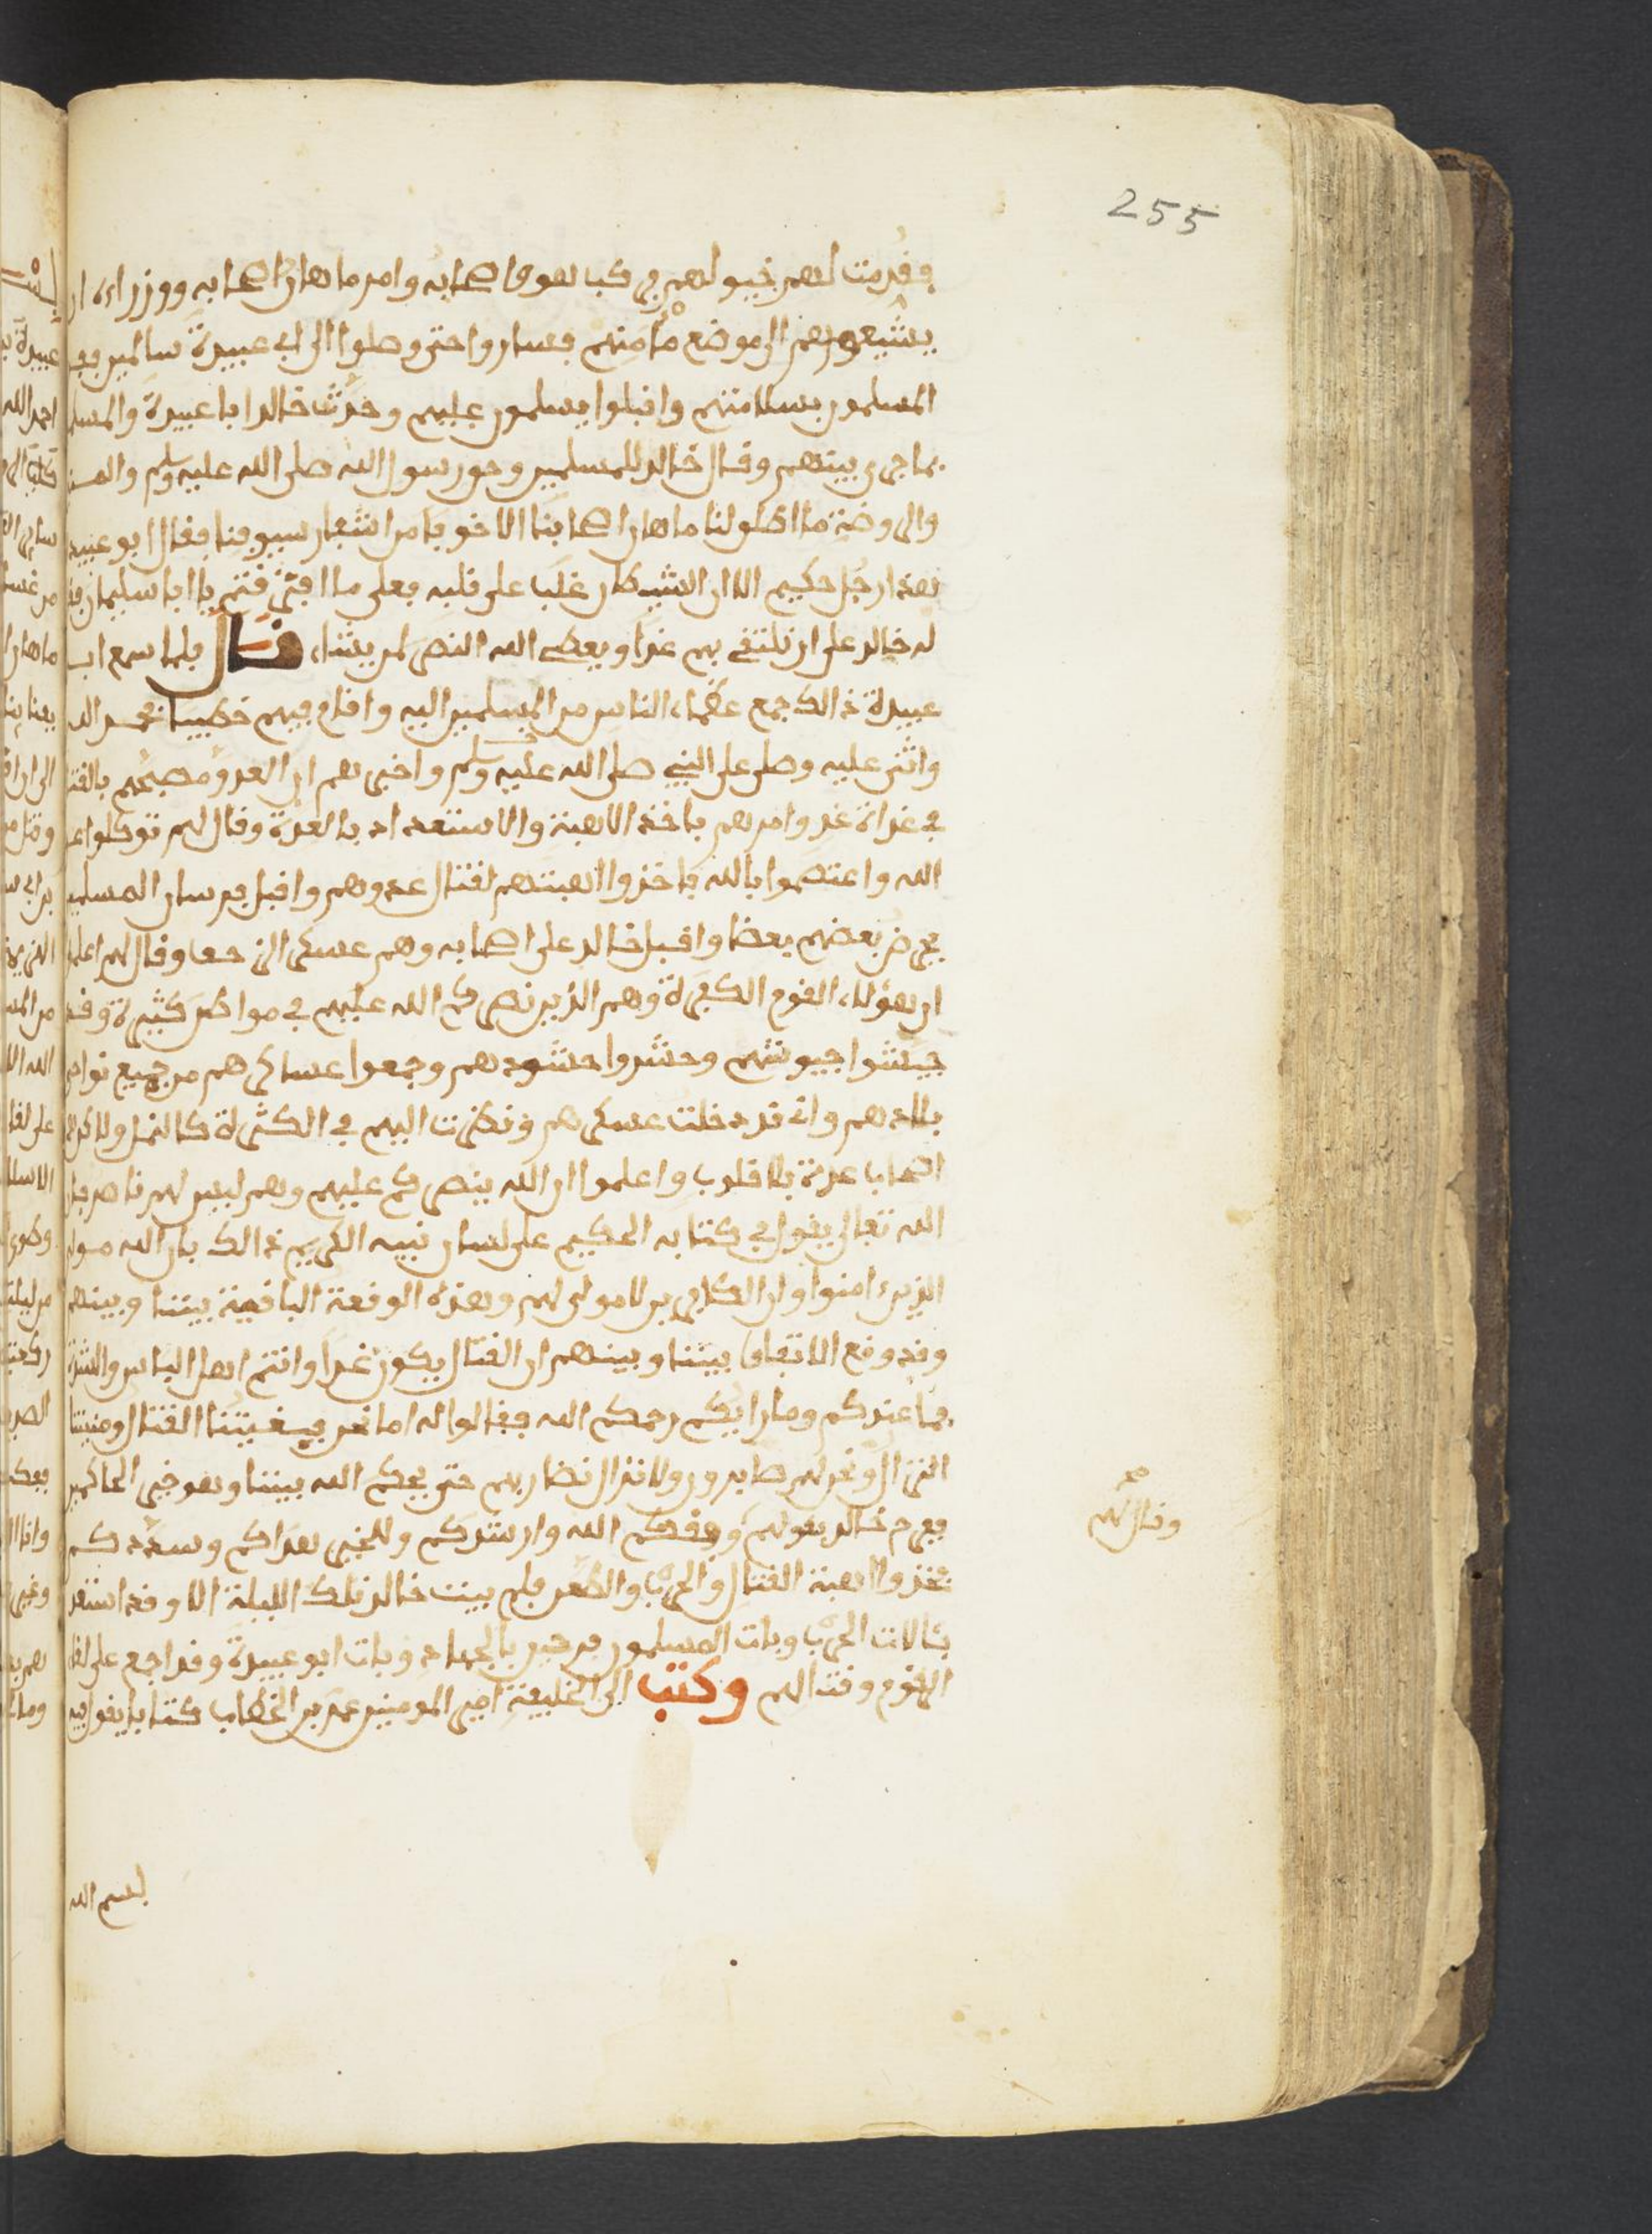 255
فقدمت لهم خيولهم فركب هو واصحابه وامر ماهان اصحابه ووزراءه ان
يشيعوهم الى موضع مامنهم فساروا حتى وصلوا الى ابي عبيدة سالمين ففر
المسلمون بسلامتهم واقبلوا يسلمون عليهم وحدث خالد ابا عبيدة والمسلم
بما جرى بينهم وقال خالد للمسلمين وحق رسول الله صلى الله عليه وسلم والمنبر
والروضة ما اطلق لنا ماهان اصحابنا الا خوفا من اشفار سيوفنا فقال ابو عبيدة
هذا رجل حكيم الا ان الشيطان غلب على قلبه فعلى ما افترقتم يا ابا سليمان فقا
له خالد على ان نلتقي بهم غدا ويعطي الله النصر لمن يشاء، قال فلما سمع اب
عبيدة ذالك جمع عظماء الناس من المسلمين اليه واقام فيهم خطيبا فحمد الله
واثنى عليه وصلى على النبي صلى الله عليه وسلم واخبرهم ان العدو مصبحكم بالقتا
في غداة غد وامرهم باخذ الاهبة والاستعداد بالعدة وقال لهم توكلوا على
الله واعتصموا بالله فاخذوا اهبتهم لقتال عدوهم واقبل فرسان المسلمين
يحرض بعضهم بعضا واقبل خالد على اصحابه وهم عسكر الزحف وقال لهم اعلموا
ان هؤلاء القوم الكفرة وهم الذين نصركم الله عليهم في مواطن كثيرة وقد
جيشوا جيوشهم وحشدوا حشودهم وجمعوا عساكرهم من جميع نواحي
بلادهم واني قد دخلت عسكرهم ونظرت اليهم في الكثرة كالنمل ولاكن
اصحاب عدة بلا قلوب واعلموا ان الله ينصركم عليهم وهم ليس لهم ناصر بان
الله تعالى يقول في كتابه الحكيم على لسان نبيه الكريم ذالك بان الله مولى
الذين ءامنوا وان الكافرين لا مولى لهم وهذه الوقعة الباقية بيننا وبينهم
وقد وقع الاتفاق بيننا وبينهم ان القتال يكون غدا وانتم اهل الباس والشدة
فما عندكم وما رايكم رحمكم الله فقالوا له اما نحن فبغيتنا القتال ومنيتنا
النزال ونحن لهم صابرون ولا نزال نضاربهم حتى يحكم الله بيننا وهو خير الحاكمين
ففرح خالد بقولهم وفقكم الله وارشدكم وللخير هداكم وسددكم
فخذوا اهبة القتال والحرب والطعن فلم يبت خالد تلك الليلة الا وقد استعد
بئالات الحرب وبات المسلمون فرحين بالجهاد وبات ابو عبيدة وقد اجمع على لقا
القوم وقتالهم وكتب الى الخليفة امير المومنين عمر بن الخطاب كتابا يقول فيه
وقال لهم
صح
بسم الله